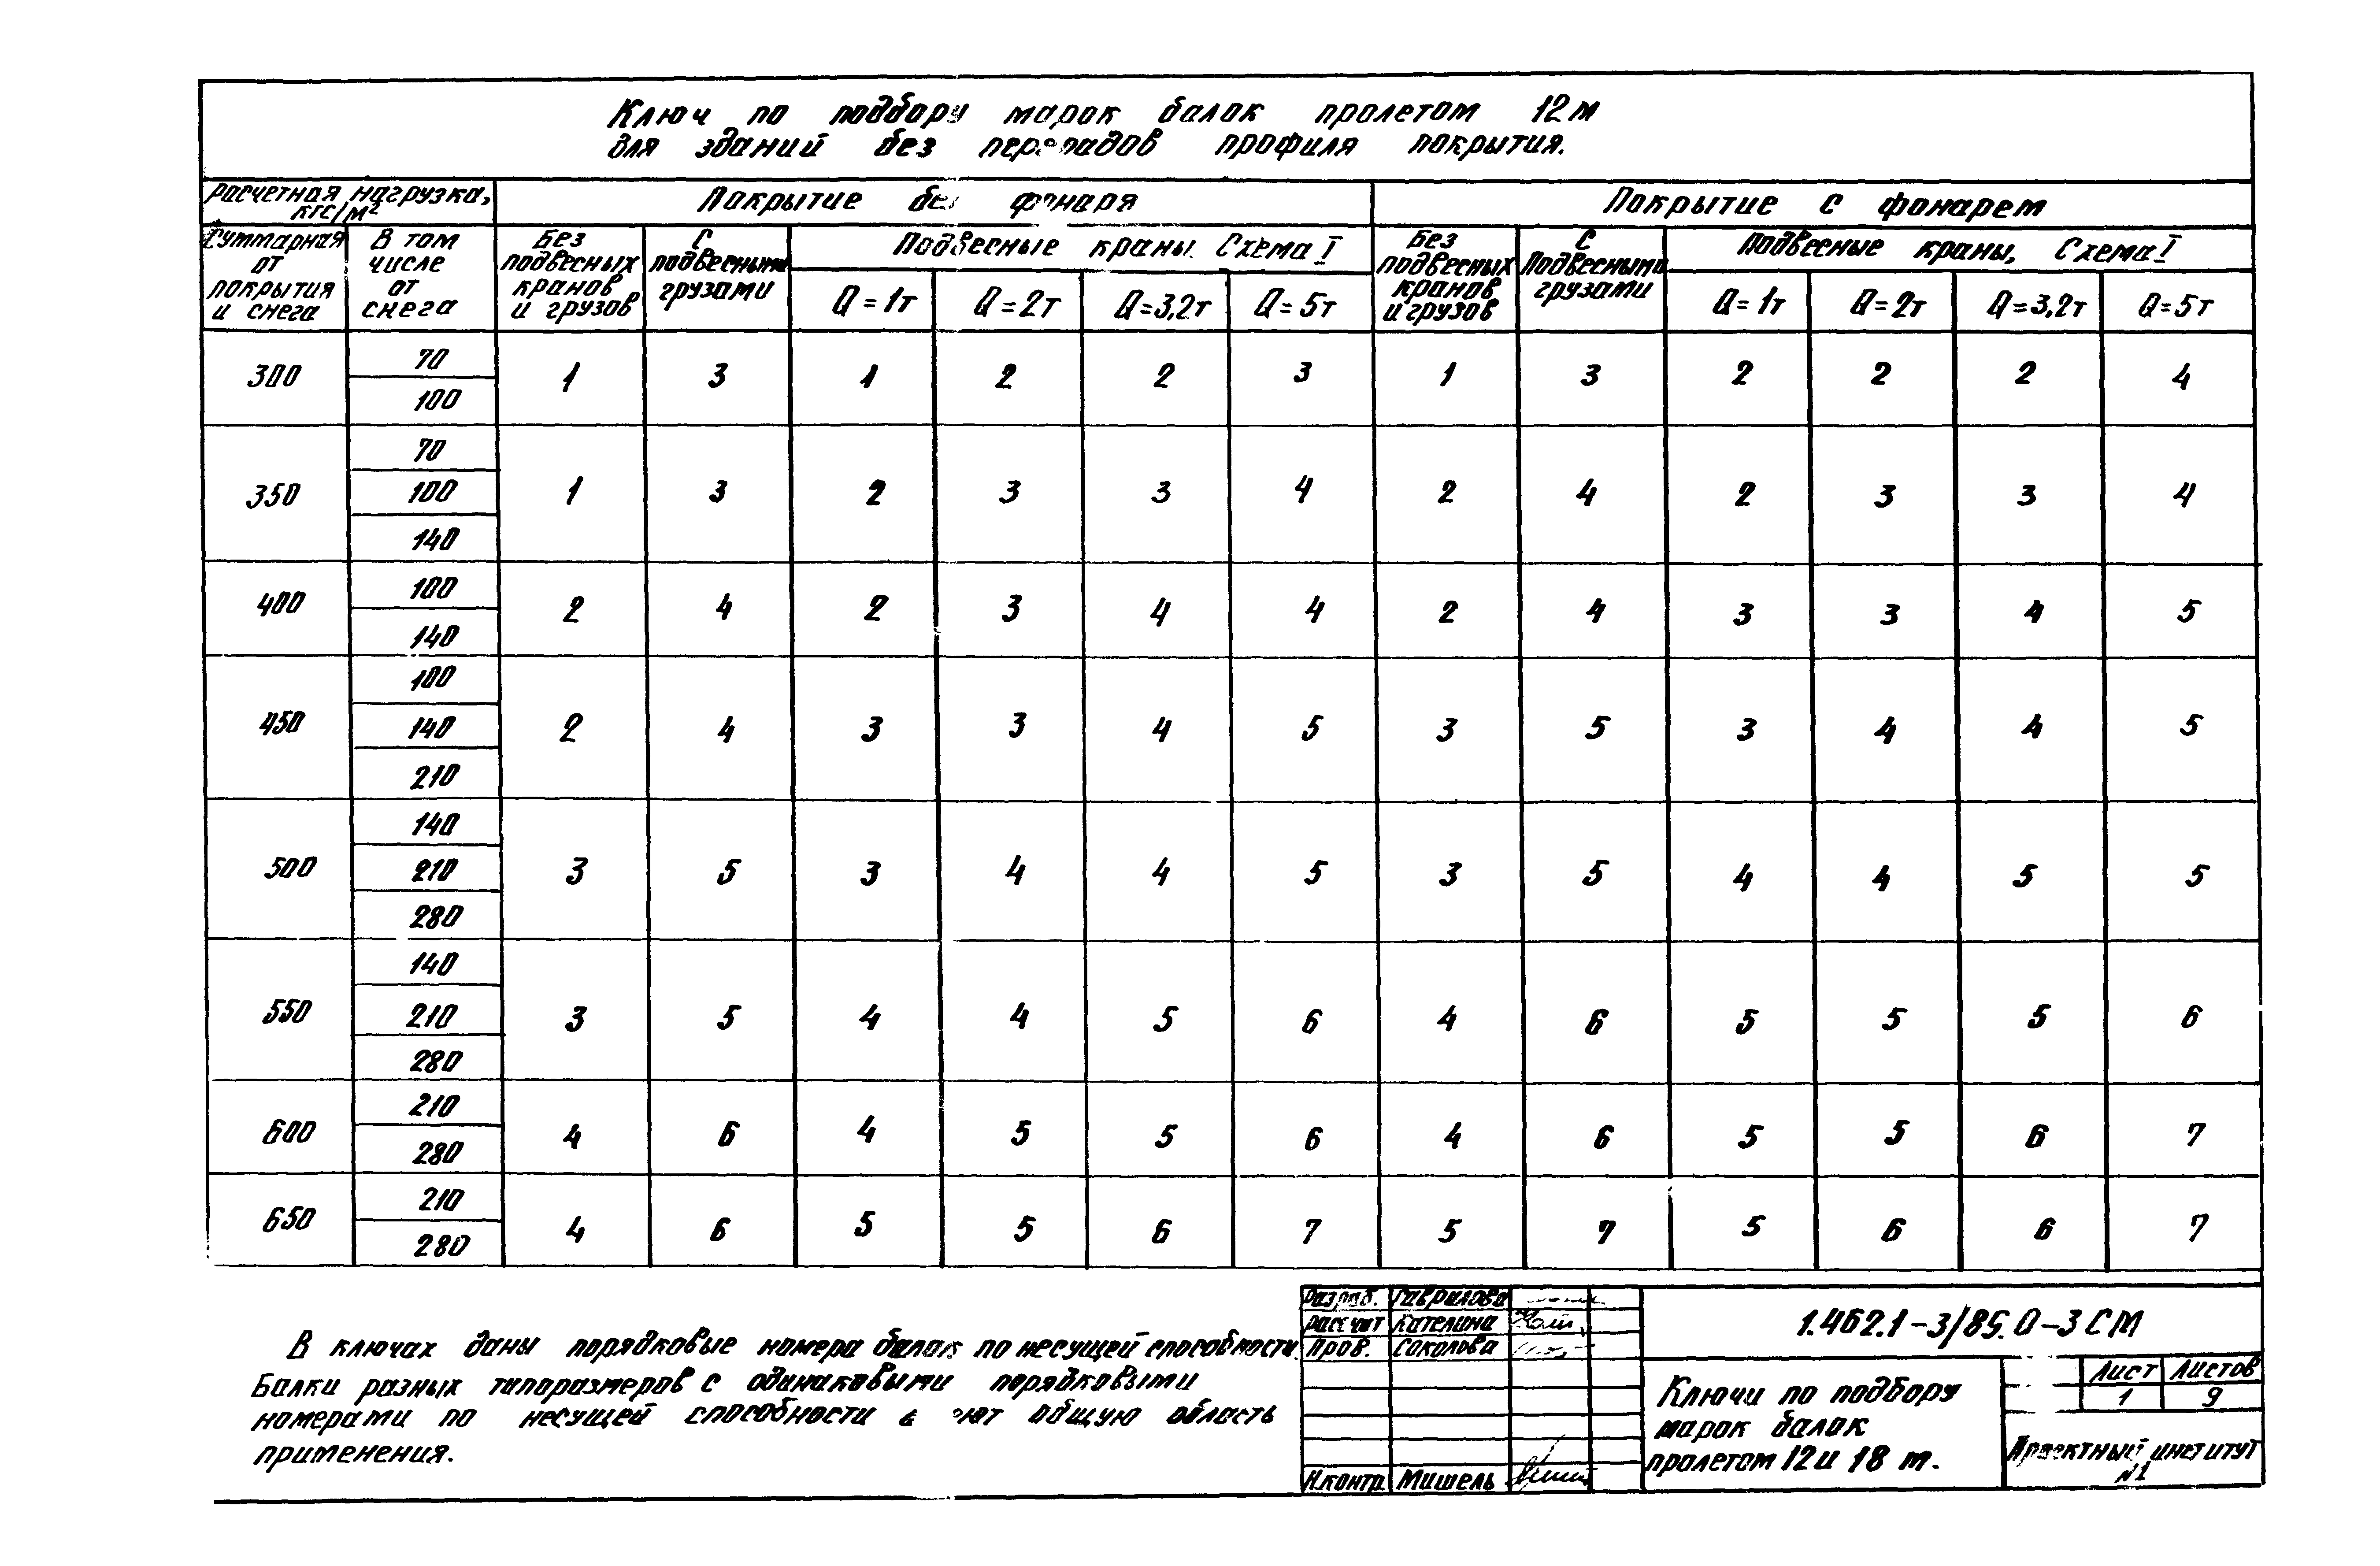 Ключ по подбору марок балок пролетом 12 м
для зданий без перепадов профиля покрытия.
Расчетная нагрузка, кгс/м² Покрытие без фонаря Покрытие с фонарем
Суммарная от покрытия и снега В том числе от снега Без подвесных кранов и грузов С подвесными грузами Подвесные краны. Схема I Без подвесных кранов и грузов С подвесными грузами Подвесные краны, Схема I
Q = 1т Q = 2т Q = 3,2т Q = 5т Q = 1т Q = 2т Q = 3,2т Q = 5т
300 70 100 1 3 1 2 2 3 1 3 2 2 2 4
350 70 100 140 1 3 2 3 3 4 2 4 2 3 3 4
400 100 140 2 4 2 3 4 4 2 4 3 3 4 5
450 100 140 210 2 4 3 3 4 5 3 5 3 4 4 5
500 140 210 280 3 5 3 4 4 5 3 5 4 4 5 5
550 140 210 280 3 5 4 4 5 6 4 6 5 5 5 6
600 210 280 4 6 4 5 5 6 4 6 5 5 6 7
650 210 280 4 6 5 5 6 7 5 7 5 6 6 7
В ключах даны порядковые номера балок по несущей способности.
Балки разных типоразмеров с одинаковыми порядковыми
номерами по несущей способности общую область
применения.
Разраб. Гаврилова
Рассчит Кателина
Пров. Соколова
Н.контр. Мишель
1.462.1-3/85.0-3СМ
Ключи по подбору
марок балок
пролетом 12 и 18 м.
Лист Листов
1 9
Проектный институт
N1